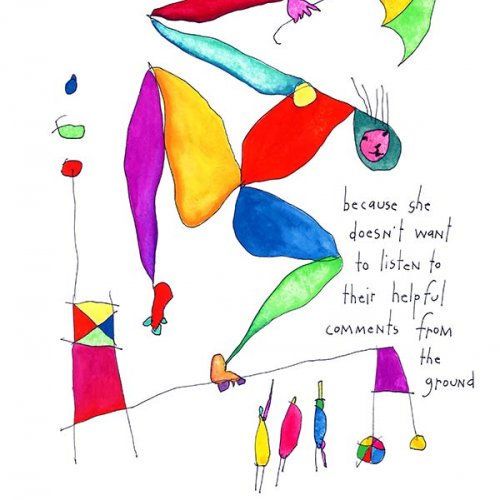 because she
doesn't want
to listen to
their helpful
comments from
the
ground